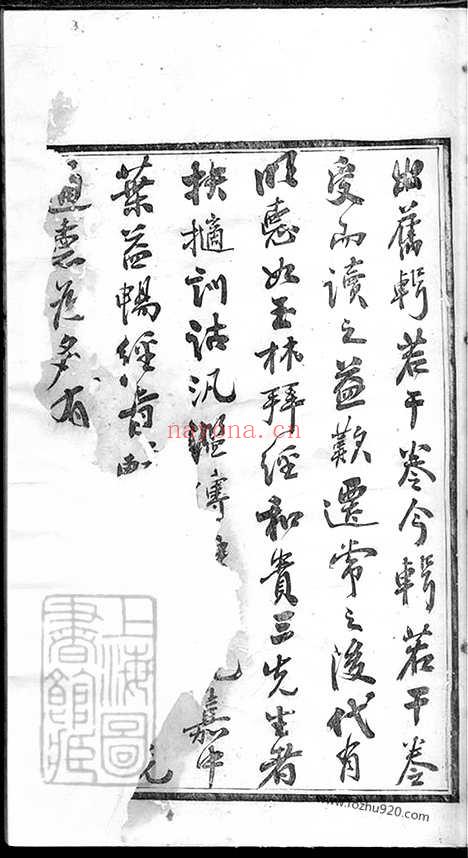 出舊輯若干卷今輯若干卷
受而讀之益歎遷常之後代有
明悳如玉林拜經和貴三先生者
抉擿訓詁汎濫傳 嘉中
葉益暢經旨
多有
上海圖
書館藏
nayona.cn
www.fozhu920.com